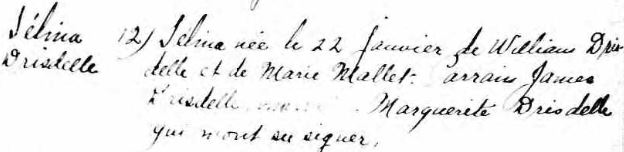 Sélina
Drisdelle
12) Selina née le 22 janvier de William Dris-
delle et de Marie Mallet. Parrain James
Drisdelle Marguerite Drisdelle
qui n'ont su signer.